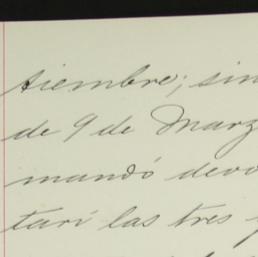 tiembre; sin
de 9 de Marz
mandó devo
tari las tres